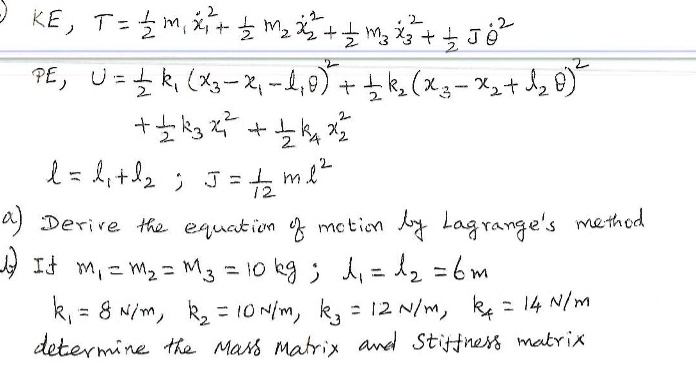 ) KE, T = ½ m₁ ẋ₁² + ½ m₂ ẋ₂² + ½ m₃ ẋ₃² + ½ J θ̇²
PE, U = ½ k₁ (x₃ − x₁ − l₁θ)² + ½ k₂ (x₃ − x₂ + l₂ θ)²
+ ½ k₃ x₁² + ½ k₄ x₂²
l = l₁ + l₂ ; J = 1/12 m l²
a) Derive the equation of motion by Lagrange's method
b) If m₁ = m₂ = m₃ = 10 kg ; l₁ = l₂ = 6m
k₁ = 8 N/m, k₂ = 10 N/m, k₃ = 12 N/m, k₄ = 14 N/m
determine the Mass Matrix and Stiffness matrix